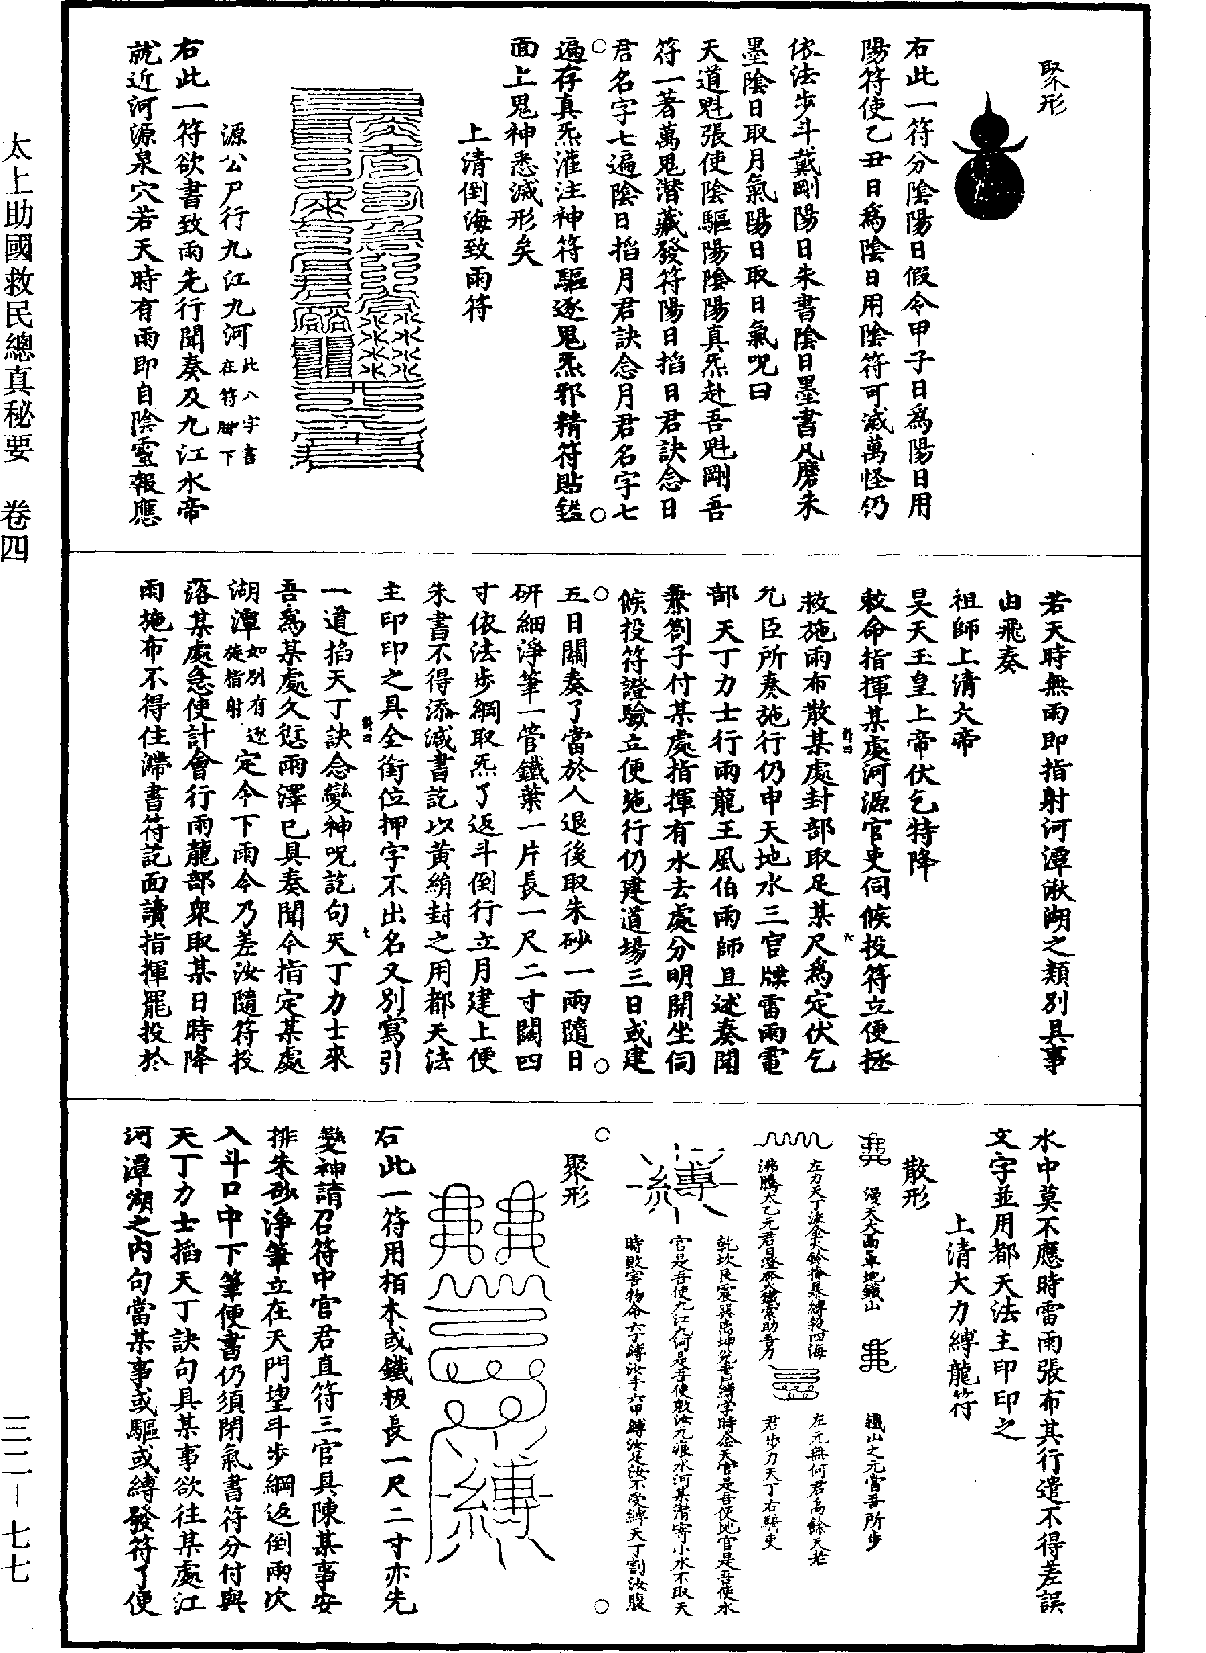 聚形
右此一符分陰陽日假令甲子日爲陽日用
陽符使乙丑日爲陰日用陰符可滅萬怪仍
依法步斗戴剛陽日朱書陰日墨書凡磨朱
墨陰日取月氣陽日取日氣呪曰
天道魁張使陰驅陽陰陽真炁赴吾魁剛吾
符一著萬鬼潛藏發符陽日掐日君訣念日
君名字七遍陰日掐月君訣念月君名字七
遍存真炁灌注神符驅逐鬼炁邪精符貼鎰
面上鬼神悉滅形矣
上清倒海致雨符
源公尸行九江九河此八字書在符脚下
右此一符欲書致雨先行聞奏及九江水帝
就近河源泉穴若天時有雨即自陰靈報應
若天時無雨即指射河潭湫湖之類別具事
由飛奏
祖師上清六帝
昊天玉皇上帝伏乞特降
敕命指揮某處河源官吏伺候投符立便拯
救施雨布散某處封部取足某尺爲定伏乞
允臣所奏施行仍申天地水三官牒雷雨電
部天丁力士行雨龍王風伯雨師且述奏聞
兼劄子付某處指揮有水去處分明開坐伺
候投符證驗立便施行仍建道場三日或建
五日關奏了當於人退後取朱砂一兩隨日
研細淨筆一管鐵葉一片長一尺二寸闊四
寸依法步綱取炁了返斗倒行立月建上便
朱書不得添減書訖以黃綃封之用都天法
主印印之具全銜位押字不出名又別寫引
一道掐天丁訣念變神呪訖句天丁力士來
吾爲某處久愆雨澤已具奏聞今指定某處
湖潭如別有逐旋指射定今下雨令乃差汝隨符投
落某處急使計會行雨龍部衆取某日時降
雨施布不得住滯書符訖面讀指揮罷投於
水中莫不應時雷雨張布其行遣不得差誤
文字並用都天法主印印之
上清大力縛龍符
散形
漫天大雨車地鐵山
鐵山之元當吾所步
左元無何君高餘天若
君步力天丁右騎吏
聚形
右此一符用栢木或鐵板長一尺二寸亦先
變神請召符中官君直符三官具陳某事安
排朱砂淨筆立在天門望斗步綱返倒兩次
入斗口中下筆便書仍須閉氣書符分付與
天丁力士掐天丁訣句具某事欲往某處江
河潭湖之內句當某事或驅或縛發符了便
太上助國救民總真秘要 卷四
三二－七七